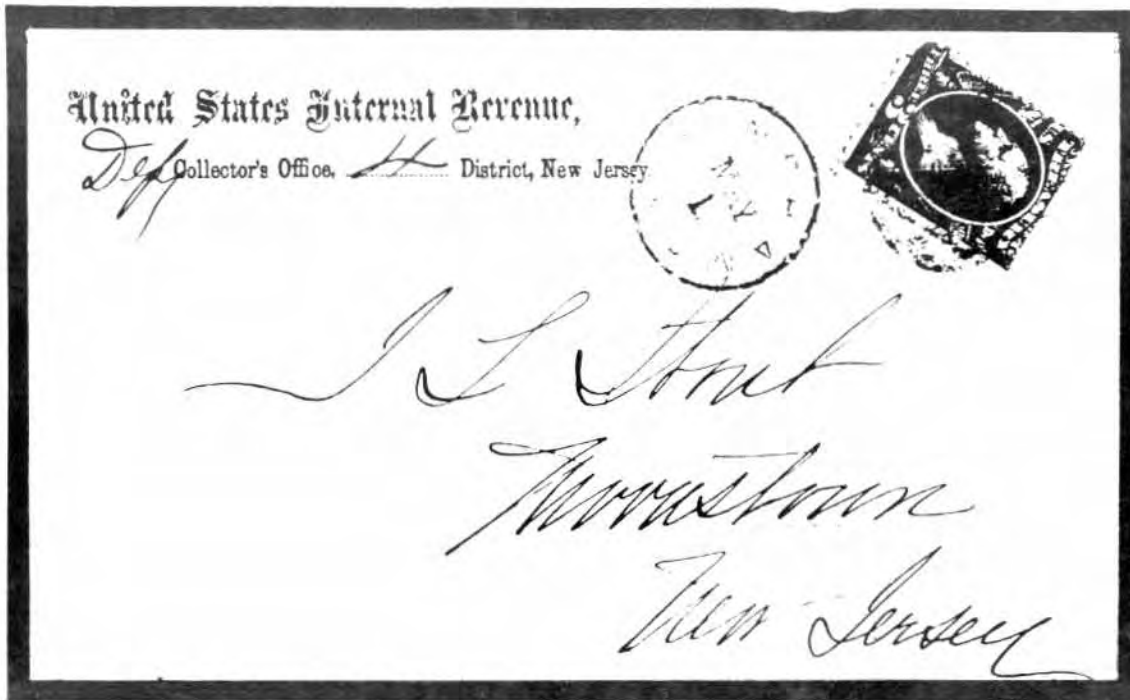 United States Internal Revenue,
Dep Collector's Office, 4 District, New Jersey
I L Stout
Morristown
New Jersey